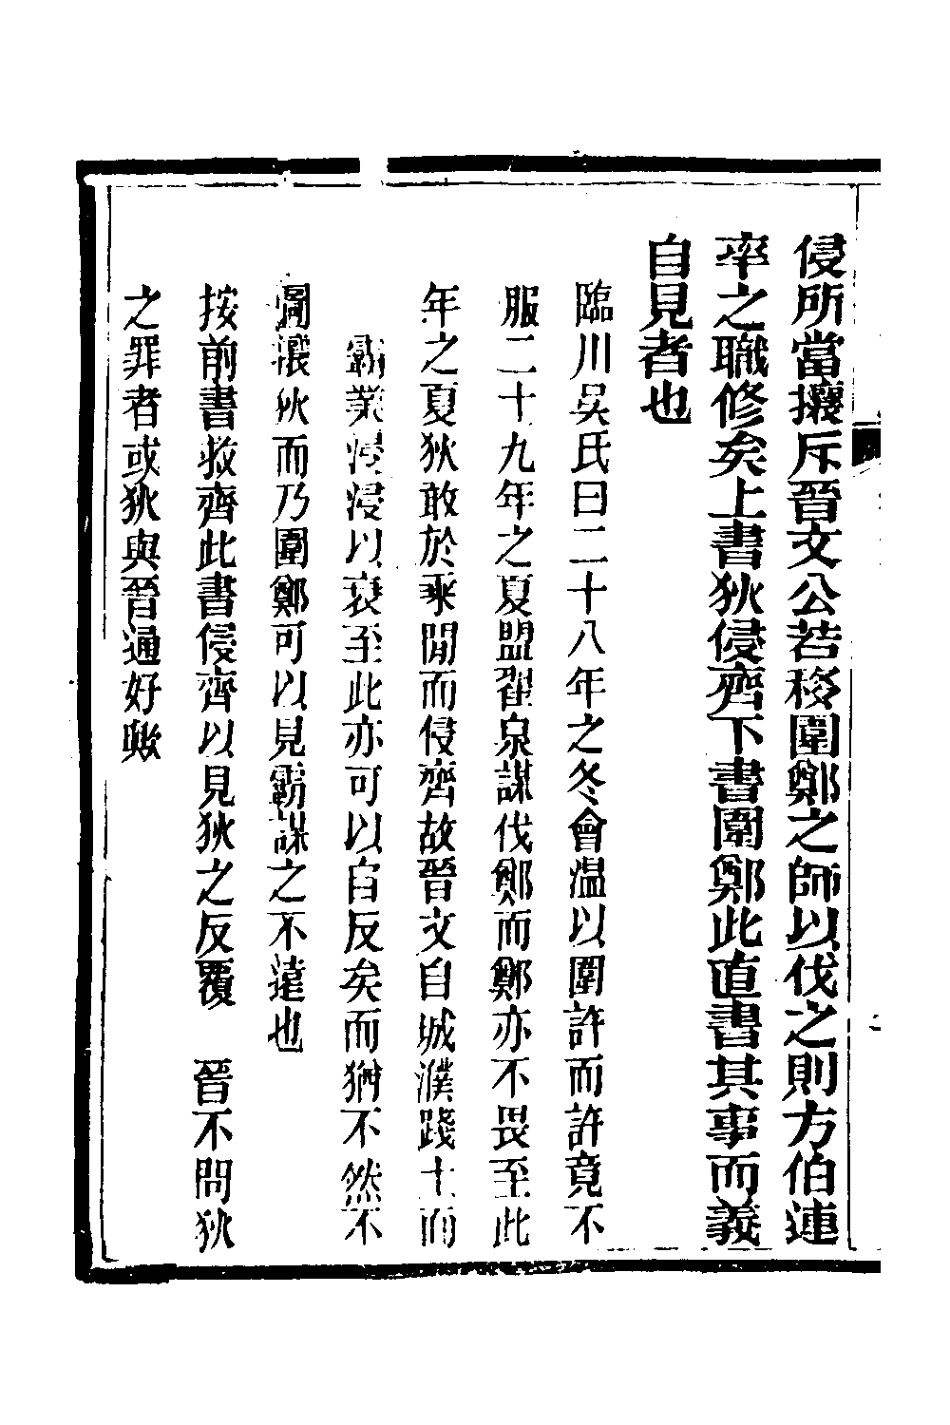 侵所當攘斥晉文公若移圍鄭之師以伐之則方伯連
率之職修矣上書狄侵齊下書圍鄭此直書其事而義
自見者也
臨川吳氏曰二十八年之冬會温以圍許而許竟不
服二十九年之夏盟翟泉謀伐鄭而鄭亦不畏至此
年之夏狄敢於乘閒而侵齊故晉文自城濮踐土而
霸業浸浸以衰至此亦可以自反矣而猶不然不
圖攘狄而乃圍鄭可以見霸謀之不遠也
按前書救齊此書侵齊以見狄之反覆　晉不問狄
之罪者或狄與晉通好歟